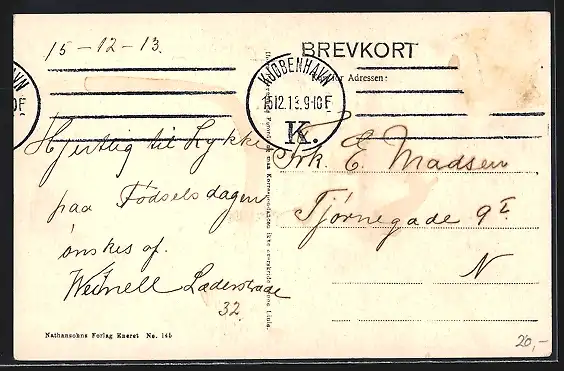 15-12-13.
BREVKORT
KJØBENHAVN
15.12.13.9-10F
K.
Adressen:
Hjertlig til Lykke
paa Fødselsdagen
ønskes af.
Læderstræde
32
Frk. E. Madsen
Tjørnegade 9 I
N
Nathansohns Forlag Eneret No. 145
20,-